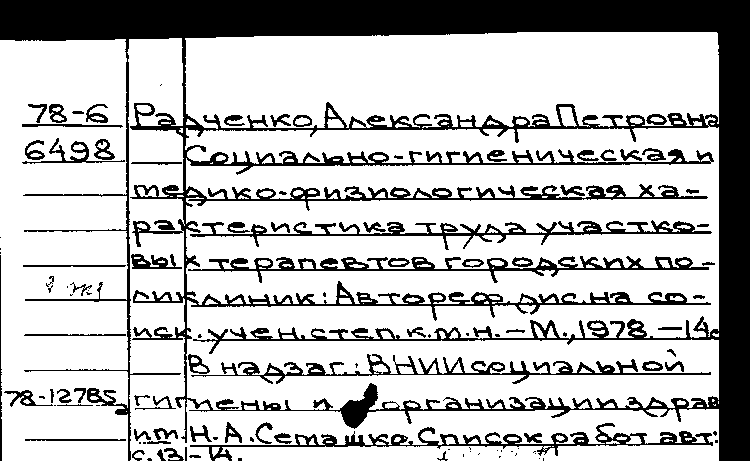 78-6 Радченко, Александра Петровна
6498 Социально-гигиеническая и
медико-физиологическая ха-
рактеристика труда участко-
вых терапевтов городских по-
ликлиник: Автореф. дис. на со-
иск. учен. степ. к.м.н. - М., 1978. - 14с
В надзаг.: ВНИИ социальной
78-12785а гигиены и организации здрав
им. Н.А. Семашко. Список работ авт.:
с. 13-14.